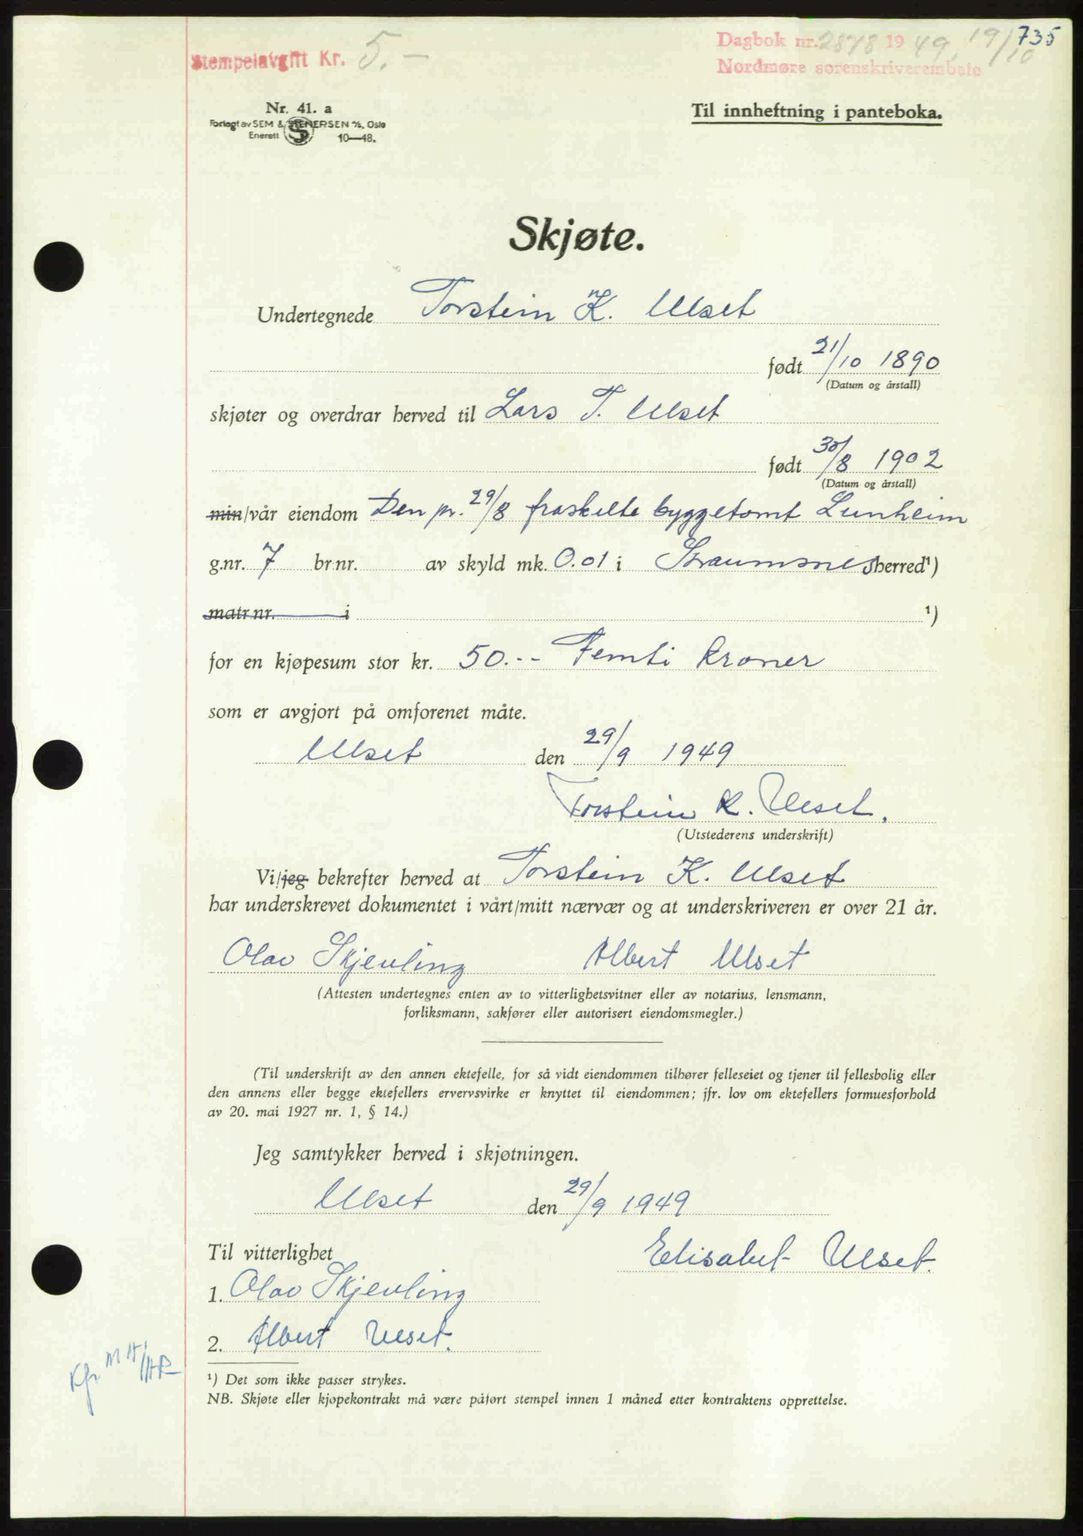 735
Stempelavgift Kr. 5.-
Dagbok nr. 2878 19 49. 19/10
Nordmøre sorenskriverembete
Nr. 41. a
Forlagt av SEM & STENERSEN A/S, Oslo
Enerett S 10—48.
Til innheftning i panteboka.
Skjøte.
Undertegnede Torstein K. Ulset
født 21/10 1890
(Datum og årstall)
skjøter og overdrar herved til Lars T. Ulset
født 30/8 1902
(Datum og årstall)
min/vår eiendom Den pr. 29/8 fraskilte byggetomt Lunheim
g.nr. 7 br.nr. av skyld mk. 0.01 i Straumsnes herred¹)
matr.nr. i ¹)
for en kjøpesum stor kr. 50.-- Femti kroner
som er avgjort på omforenet måte.
Ulset den 29/9 1949
Torstein K. Ulset.
(Utstederens underskrift)
Vi/jeg bekrefter herved at Torstein K. Ulset
har underskrevet dokumentet i vårt/mitt nærvær og at underskriveren er over 21 år.
Olav Skjevling Albert Ulset
(Attesten undertegnes enten av to vitterlighetsvitner eller av notarius, lensmann,
forliksmann, sakfører eller autorisert eiendomsmegler.)
(Til underskrift av den annen ektefelle, for så vidt eiendommen tilhører felleseiet og tjener til fellesbolig eller
den annens eller begge ektefellers ervervsvirke er knyttet til eiendommen; jfr. lov om ektefellers formuesforhold
av 20. mai 1927 nr. 1, § 14.)
Jeg samtykker herved i skjøtningen.
Ulset den 29/9 1949
Til vitterlighet
Elisabet Ulset.
1. Olav Skjevling
2. Albert Ulset.
¹) Det som ikke passer strykes.
NB. Skjøte eller kjøpekontrakt må være påført stempel innen 1 måned etter kontraktens opprettelse.